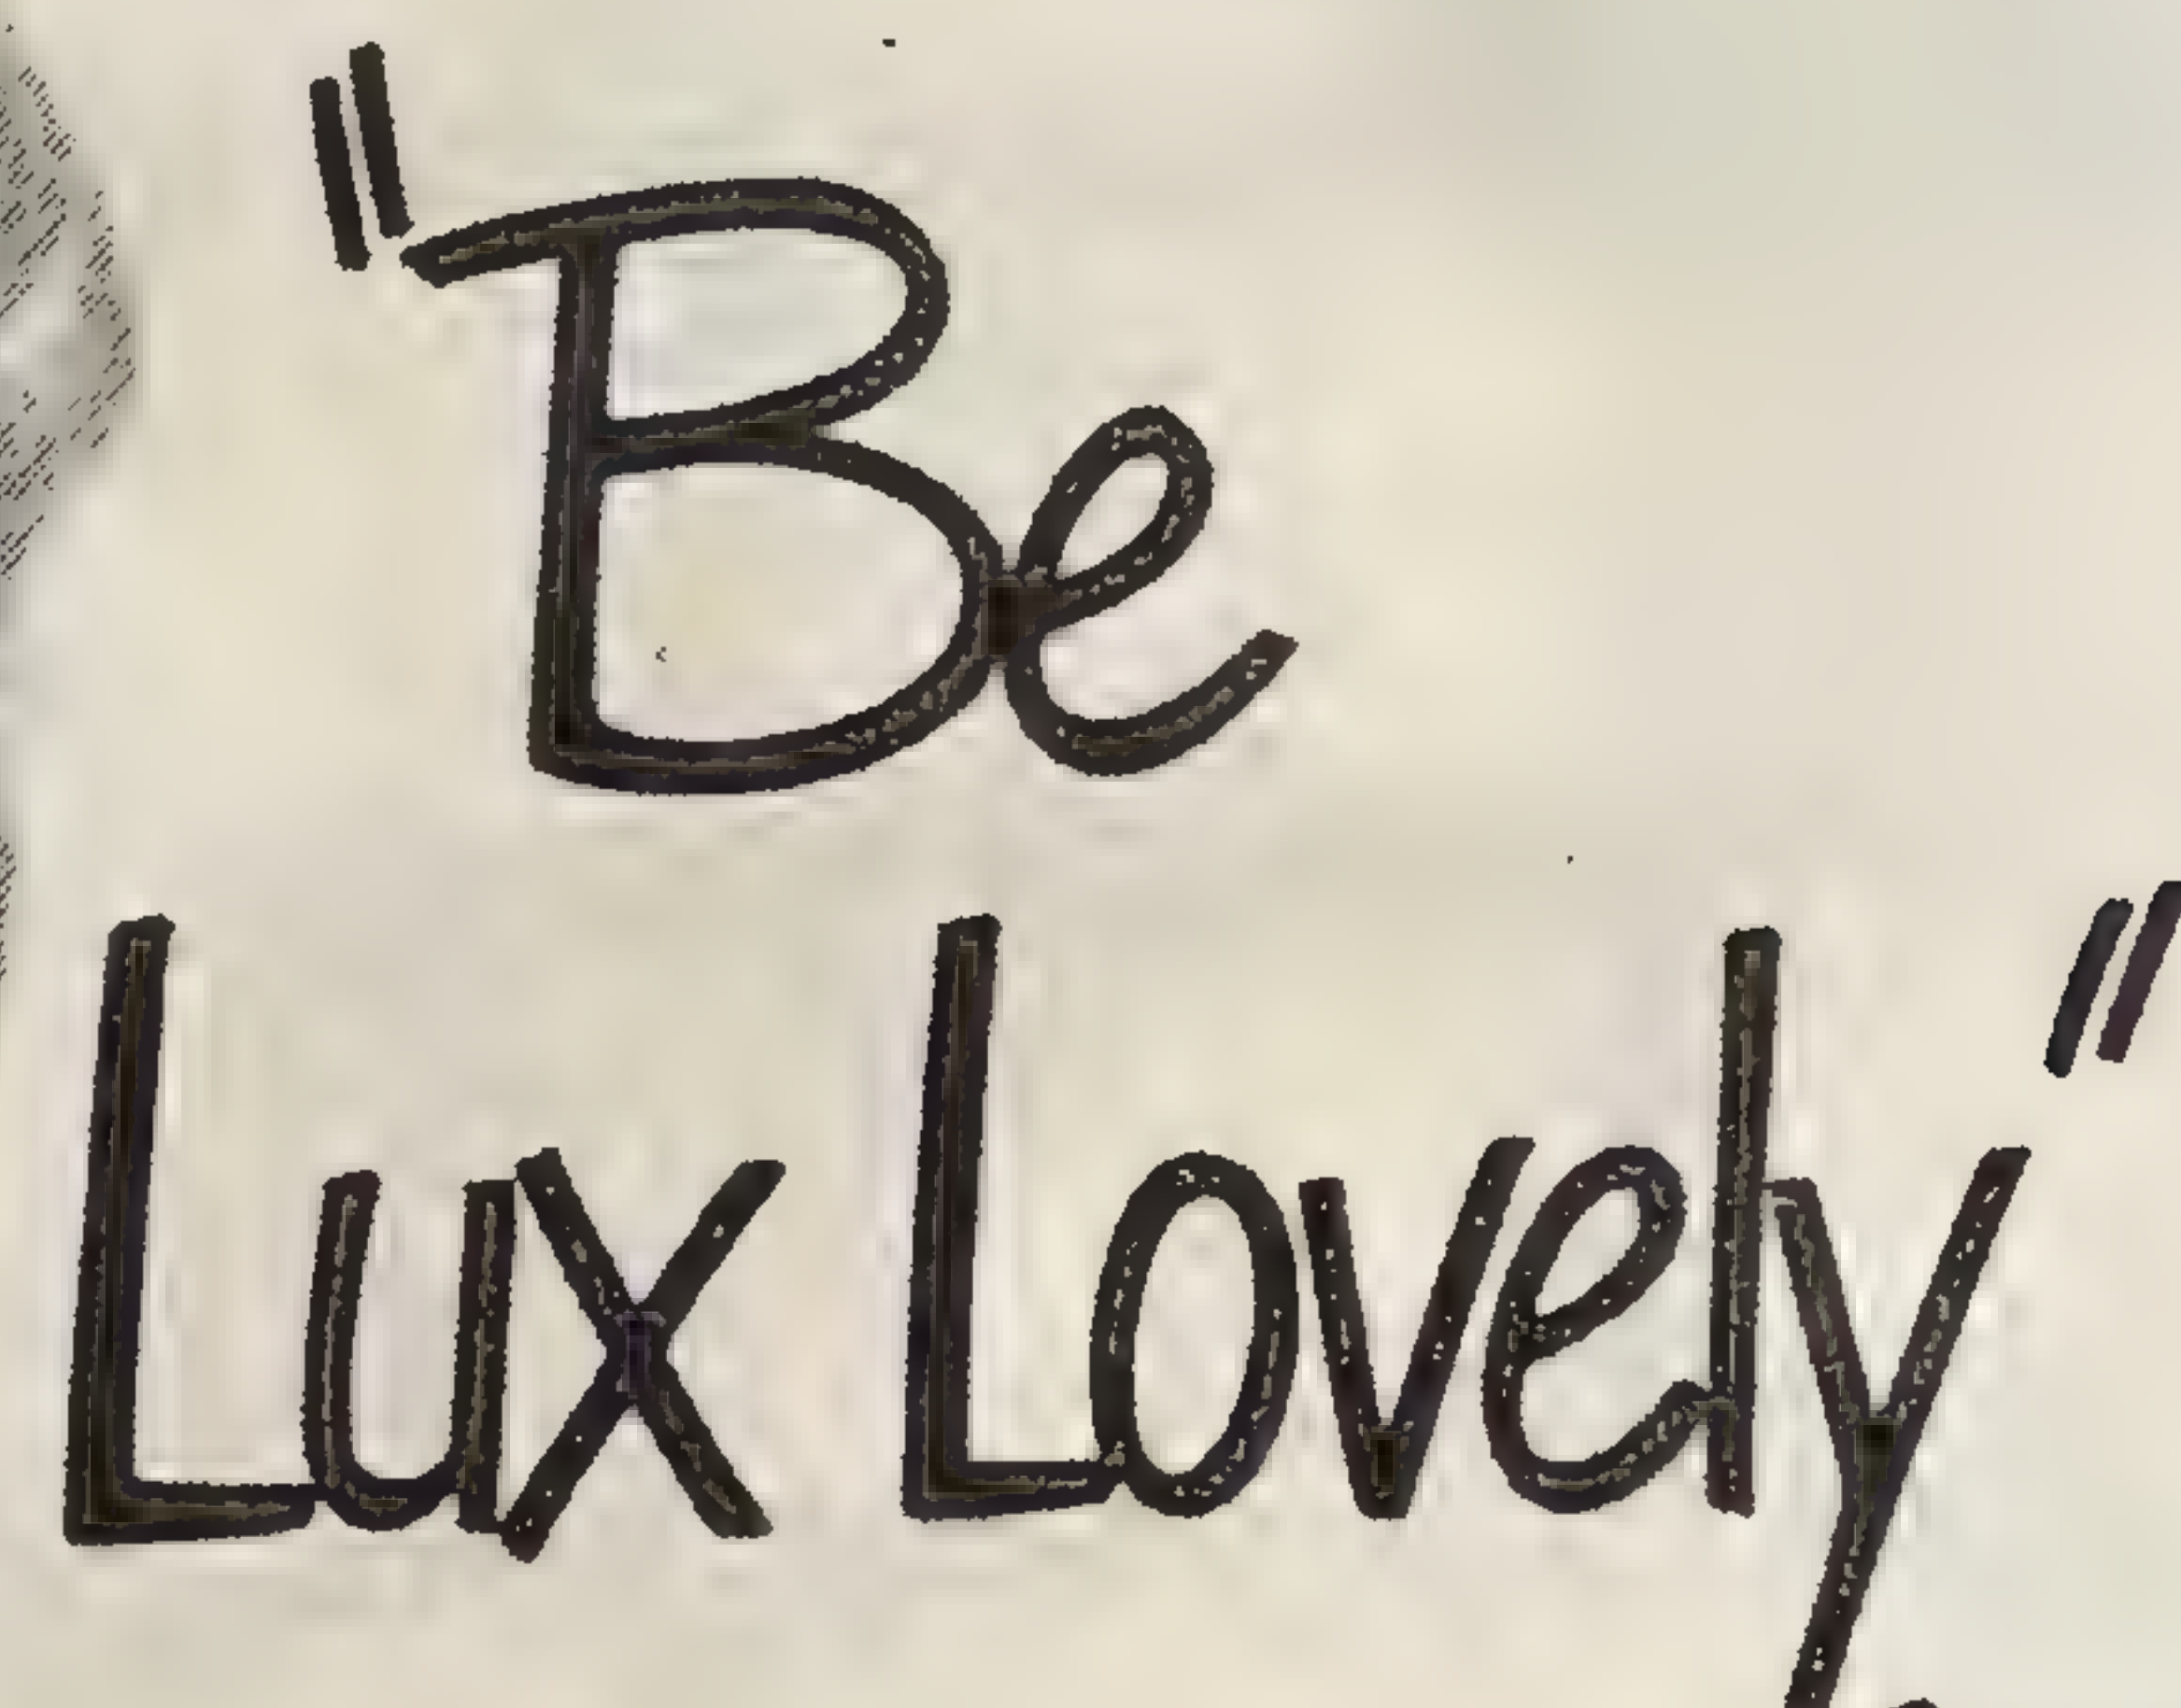 "Be
Lux Lovely"